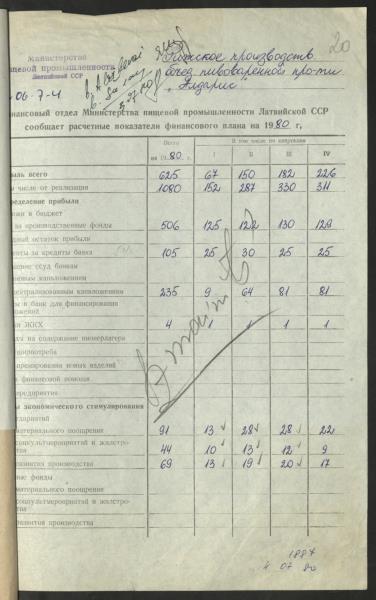 20
министерство
ищевой промышленности
Латвийской ССР
06.7-4
Рижское производств.
объед. пивоваренной пром-ти
"Алдарис"
инансовый отдел Министерства пищевой промышленности Латвийской ССР
сообщает расчетные показатели финансового плана на 1980 г,
Всего на 1980. В том числе по кварталам
I II III IV
ыль всего 625 67 150 182 226
числе от реализации 1080 152 287 330 311
ределение прибыли
жи в бюджет
за производственные фонды 506 125 122 130 129
дный остаток прибыли
нты за кредиты банка 105 25 30 25 25
ение ссуд банкам
вложениям
нецентрализованным капвложениям 235 9 64 81 81
ы в банк для финансирования
ложений
и ЖКХ 4 1 1 1 1
ды на содержание пионерлагеря
премирования новых изделий
финансовой помощи
предприятия
ы экономического стимулирования
едприятий
материального поощрения 91 13 28 28 22
соцкультмероприятий и жилстро-
тва 44 10 13 12 9
развития производства 69 13 19 20 17
ные фонды
материального поощрения
соцкультмероприятий и жилстро-
тва
развития производства
1887
4 07 80